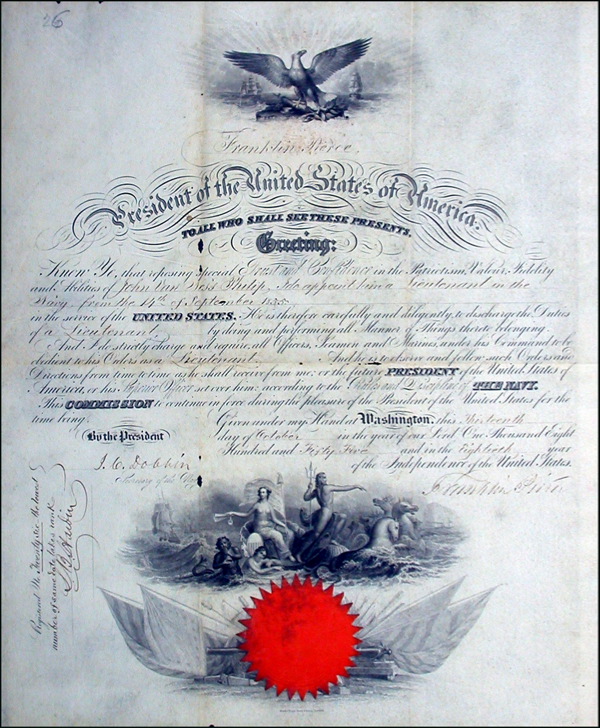 26
Franklin Pierce
President of the United States of America.
TO ALL WHO SHALL SEE THESE PRESENTS,
Greeting:
Know Ye, that reposing special Trust and Confidence in the Patriotism, Valour, Fidelity
and Abilities of John Van Ness Philip, I do appoint him a Lieutenant in the
Navy, from the 14th of September 1855
in the service of the UNITED STATES. He is therefore carefully and diligently, to discharge the Duties
of a Lieutenant by doing and performing all Manner of Things thereto belonging.
And I do strictly charge and require all Officers, Seamen and Marines, under his Command to be
obedient to his Orders as a Lieutenant. And he is to observe and follow such Orders and
Directions from time to time as he shall receive from me, or the future PRESIDENT of the United States of
America, or his Superior Officer set over him, according to the Rules and Discipline of THE NAVY.
This COMMISSION to continue in force during the pleasure of the President of the United States for the
time being.
Given under my Hand at Washington, this thirteenth
day of October in the year of our Lord One Thousand Eight
Hundred and Fifty Five and in the Eightieth year
of the Independence of the United States.
By the President
Franklin Pierce
J. C. Dobbin
Secretary of the Navy
Registered No. Twenty six the lowest
number of same date takes rank